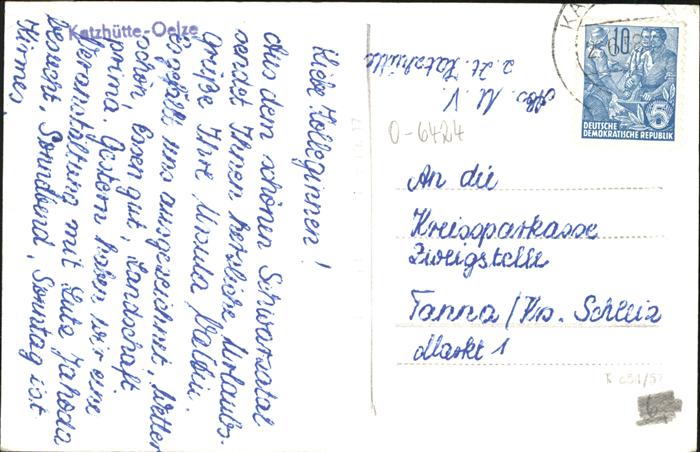 Katzhütte-Oelze
Liebe Kolleginnen!
Aus dem schönen Schwarzatal
sendet Ihnen herzliche Urlaubs-
grüße Ihre Ursula
Es gefällt uns ausgezeichnet, Wetter
schön, Essen gut, Landschaft
prima. Gestern haben wir eine
Veranstaltung mit Lutz Jahoda
besucht, Sonnabend, Sonntag ist
Kirmes.
Abs. U. V.
z. Zt. Katzhütte
0-6424
10
5
DEUTSCHE
DEMOKRATISCHE REPUBLIK
An die
Kreissparkasse
Zweigstelle
Tanna / Krs. Schleiz
Markt 1